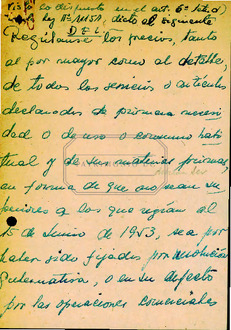 Visto lo dispuesto en el art. 6º
ley Nº 11157, dicto el siguiente
DEC
Regúlanse los precios, tanto
al por mayor como al detalle,
de todos los servicios o artículos
declarados de primera necesi
dad o de uso o consumo habi
tual y de sus materias primas,
en forma de que no sean su
periores a los que regían al
15 de Junio de 1953, sea por
haber sido fijados por resolución
Gubernativa, o en su defecto
por las operaciones comerciales